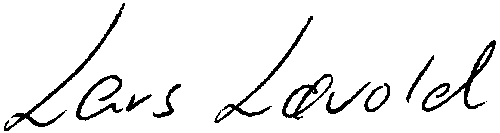 Lars Løvold